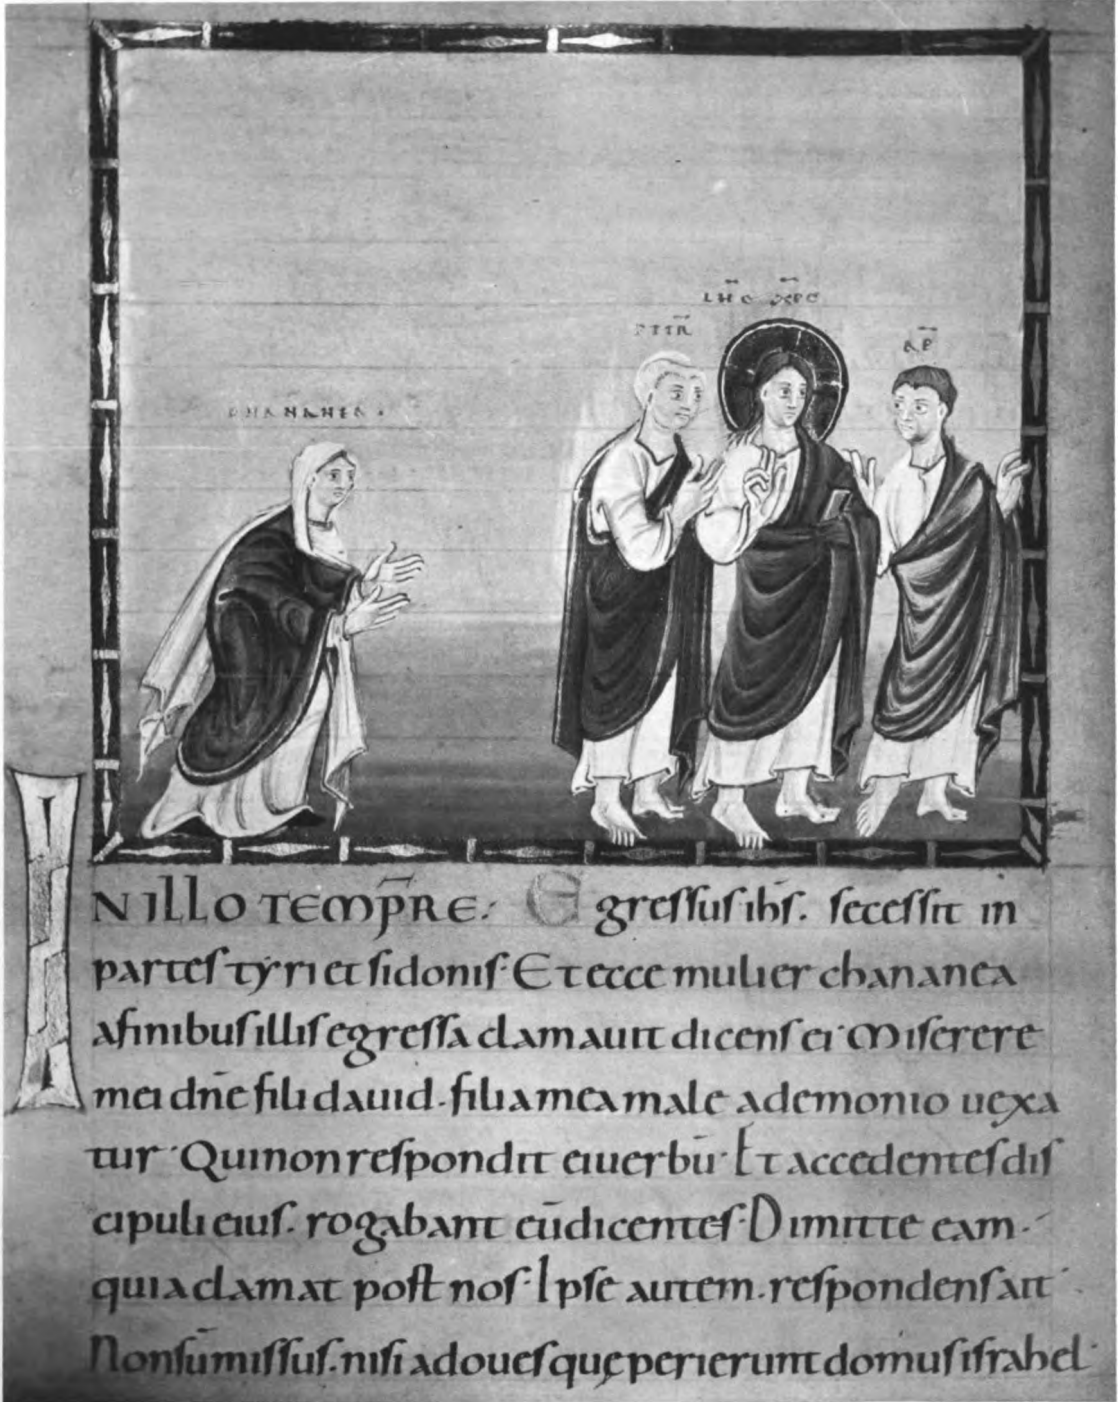 IHC XPC
PETR
AP
CHANANEA.
IN ILLO TEMP̄RE: Egreſſuſ ihſ̄. ſeceſſit in
parteſ tyri et ſidoniſ· Et ecce mulier chananea
a finibuſ illiſ egreſſa clamauit dicenſ ei· Miſerere
mei dn̄e fili dauid. filia mea male a demonio uexa
tur· Qui non reſpondit ei uerbū· Et accedenteſ diſ
cipuli eiuſ. rogabant eū dicenteſ· Dimitte eam.
quia clamat poſt noſ· Ipſe autem. reſpondenſ ait·
Non ſum̄ miſſuſ. niſi ad oueſ quę perierunt domuſ iſrahel·